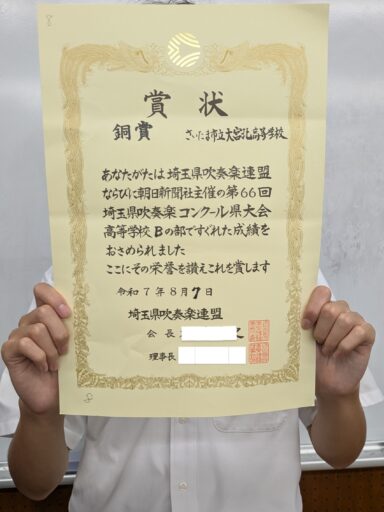 賞状
銅賞
さいたま市立大宮北高等学校
あなたがたは埼玉県吹奏楽連盟
ならびに朝日新聞社主催の第66回
埼玉県吹奏楽コンクール県大会
高等学校Bの部ですぐれた成績を
おさめられました
ここにその栄誉を讃えこれを賞します
令和7年8月7日
埼玉県吹奏楽連盟
会長
理事長